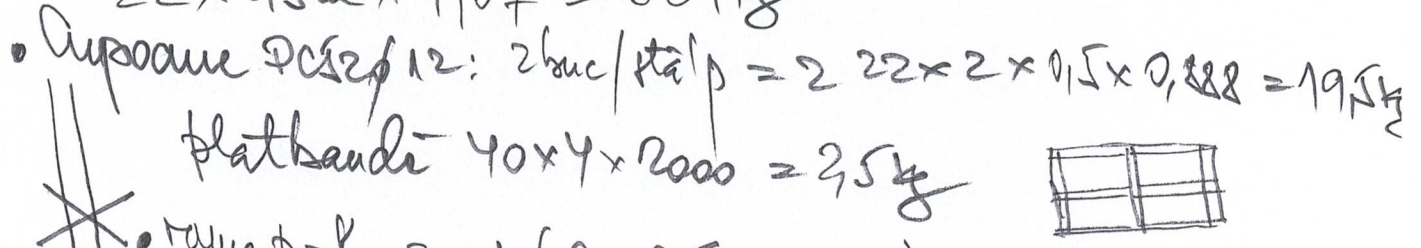 • Cupoane PC52ϕ12: 2buc/stâlp = 2 22×2×0,5×0,888 = 19,5kg
platbandă 40×4×2000 = 2,5kg